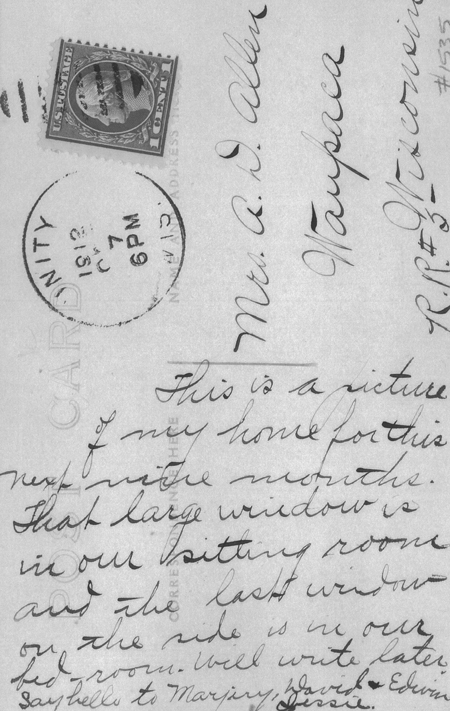 This is a picture
of my home for this
next nine months.
That large window is
in our sitting room
and the last window
on the side is in our
bed-room. Will write later
Say hello to Marjery, David & Edwin
Jessie.
Mrs. A. D. Allen
Waupaca
Wisconsin
R.R.# 3-
#1535
U.S. POSTAGE
1 CENT 1
UNITY
WIS.
7
6PM
1912
POST CARD
CORRESPONDENCE HERE
NAME AND ADDRESS HERE